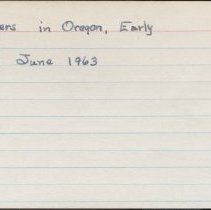 ers in Oregon, Early
June 1963